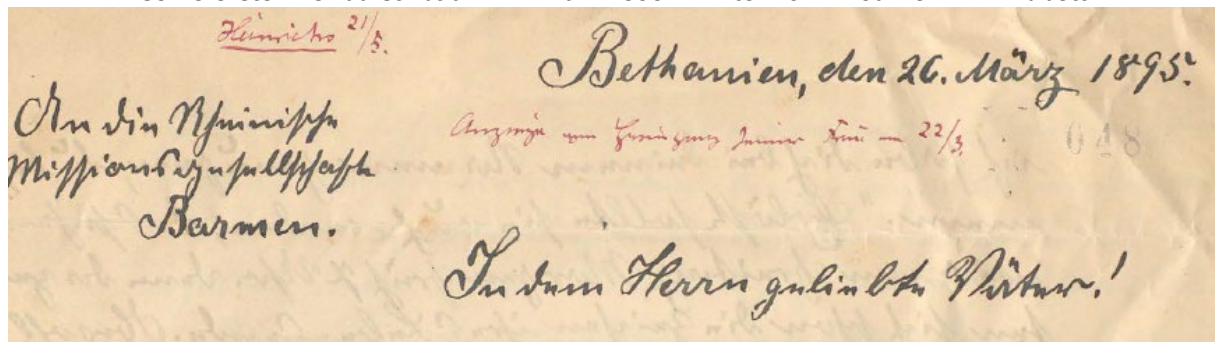 Heinrichs 21/5.
Bethanien, den 26. März 1895.
An die Rheinische
Missionsgesellschaft
Barmen.
Anzeige vom seiner Frau 22/3.
048
In dem Herrn geliebte Väter!